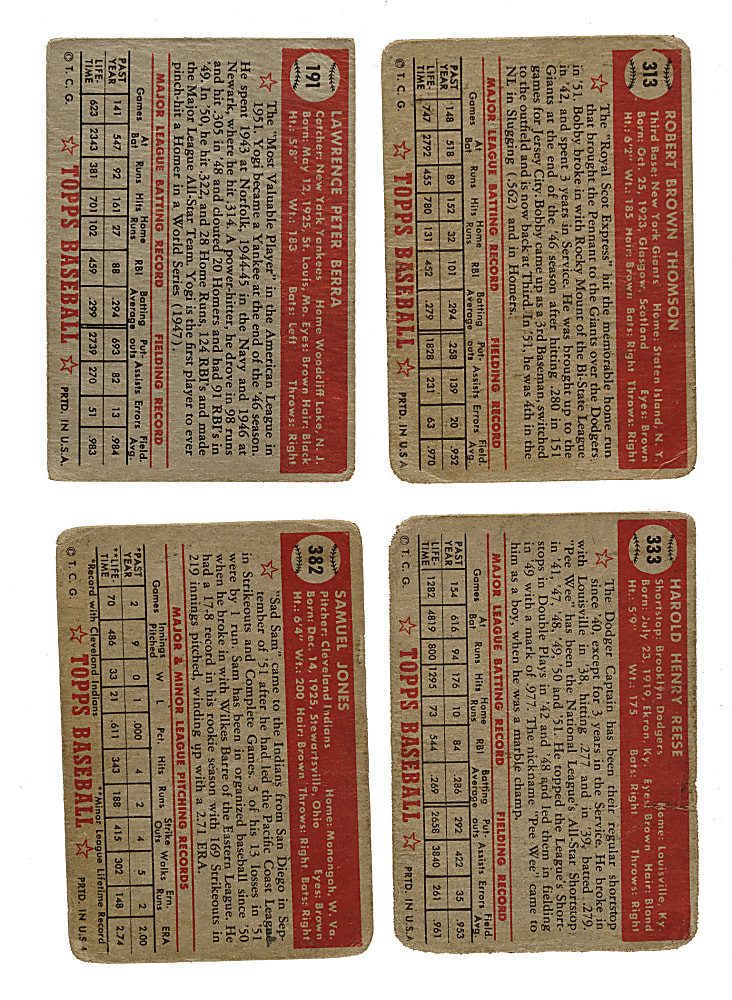 191
LAWRENCE PETER BERRA
Catcher: New York Yankees Home Woodcliff Lake, N. J.
Born: May 12, 1925, St. Louis, Mo. Eyes: Brown Hair: Black
Ht.: 5'8" Wt.: 183 Bats: Left Throws: Right
The "Most Valuable Player" in the American League in
1951, Yogi became a Yankee at the end of the '46 season.
He spent 1943 at Norfolk, 1944-45 in the Navy and 1946 at
Newark, where he hit .314. A power-hitter, he drove in 98 runs
and hit .305 in '48 and clouted 20 Homers and had 91 RBI's in
'49. In '50, he hit .322 and 28 Home Runs, 124 RBI's and made
the Major League All-Star Team. Yogi is the first player to ever
pinch-hit a Homer in a World Series (1947).
MAJOR LEAGUE BATTING RECORD FIELDING RECORD
Games At Bat Runs Hits Home Runs RBI Batting Average Put-outs Assists Errors Field. Avg.
PAST YEAR 141 547 92 161 27 88 .294 693 82 13 .984
LIFE-TIME 623 2343 381 701 102 459 .299 2739 270 51 .983
© T. C. G. TOPPS BASEBALL PRTD. IN U.S.A.
313
ROBERT BROWN THOMSON
Third Base: New York Giants Home: Staten Island, N. Y.
Born: Oct. 25, 1923, Glasgow, Scotland Eyes: Brown
Ht.: 6'2" Wt.: 185 Hair: Brown Bats: Right Throws: Right
The "Royal Scot Express" hit the memorable home run
that brought the Pennant to the Giants over the Dodgers
in '51. Bobby broke in with Rocky Mount of the Bi-State League
in '42, and spent 3 years in Service. He was brought up to the
Giants at the end of the '46 season after hitting .280 in 151
games for Jersey City. Bobby came up as a 3rd Baseman, switched
to the outfield and is now back at Third. In '51, he was 4th in the
NL in Slugging (.562) and in Homers.
MAJOR LEAGUE BATTING RECORD FIELDING RECORD
Games At Bat Runs Hits Home Runs RBI Batting Average Put-outs Assists Errors Field. Avg.
PAST YEAR 148 518 89 152 32 101 .294 258 139 20 .952
LIFE-TIME 747 2792 455 780 131 452 .279 1828 231 63 .970
© T. C. G. TOPPS BASEBALL PRTD. IN U.S.A.
382
SAMUEL JONES
Pitcher: Cleveland Indians Home: Monongah, W. Va.
Born: Dec. 14, 1925, Stewartsville, Ohio Eyes: Brown
Ht.: 6'4" Wt.: 200 Hair: Brown Throws: Right Bats: Right
"Sad Sam" came to the Indians from San Diego in Sep-
tember of '51 after he had led the Pacific Coast League
in Strikeouts and Complete Games. 5 of his 13 losses in '51
were by 1 run. Sam has been in organized baseball since '50
when he broke in with Wilkes Barre of the Eastern League. He
had a 17-8 record in his rookie season with 169 Strikeouts in
219 innings pitched, winding up with a 2.71 ERA.
MAJOR & MINOR LEAGUE PITCHING RECORDS
Games Innings Pitched W L Pct. Hits Runs Strike Outs Walks Ern. Runs ERA
*PAST YEAR 2 9 0 1 .000 4 2 4 5 2 2.00
**LIFE-TIME 70 486 33 21 .611 343 188 415 302 148 2.74
*Record with Cleveland Indians **Minor League Lifetime Record
© T. C. G. TOPPS BASEBALL PRTD. IN U.S.A.
333
HAROLD HENRY REESE
Shortstop: Brooklyn Dodgers Home: Louisville, Ky.
Born: July 23, 1919, Ekron, Ky. Eyes: Brown Hair: Blond
Ht.: 5'9" Wt.: 175 Bats: Right Throws: Right
The Dodger Captain has been their regular shortstop
since '40, except for 3 years in the Service. He broke in
with Louisville in '38, hitting .277 and in '39, batted .279.
"Pee Wee" has been the National League's All-Star Shortstop
in '41, '47, '48, '49, '50 and '51. He topped the League Short-
stops in Double Plays in '42 and '48 and led them in fielding
in '49 with a mark of .977. The nickname "Pee Wee" came to
him as a boy, when he was a marble champ.
MAJOR LEAGUE BATTING RECORD FIELDING RECORD
Games At Bat Runs Hits Home Runs RBI Batting Average Put-outs Assists Errors Field. Avg.
PAST YEAR 154 616 94 176 10 84 .286 292 422 35 .953
LIFE-TIME 1282 4819 800 1295 73 544 .269 2658 3840 261 .961
© T. C. G. TOPPS BASEBALL PRTD. IN U.S.A.